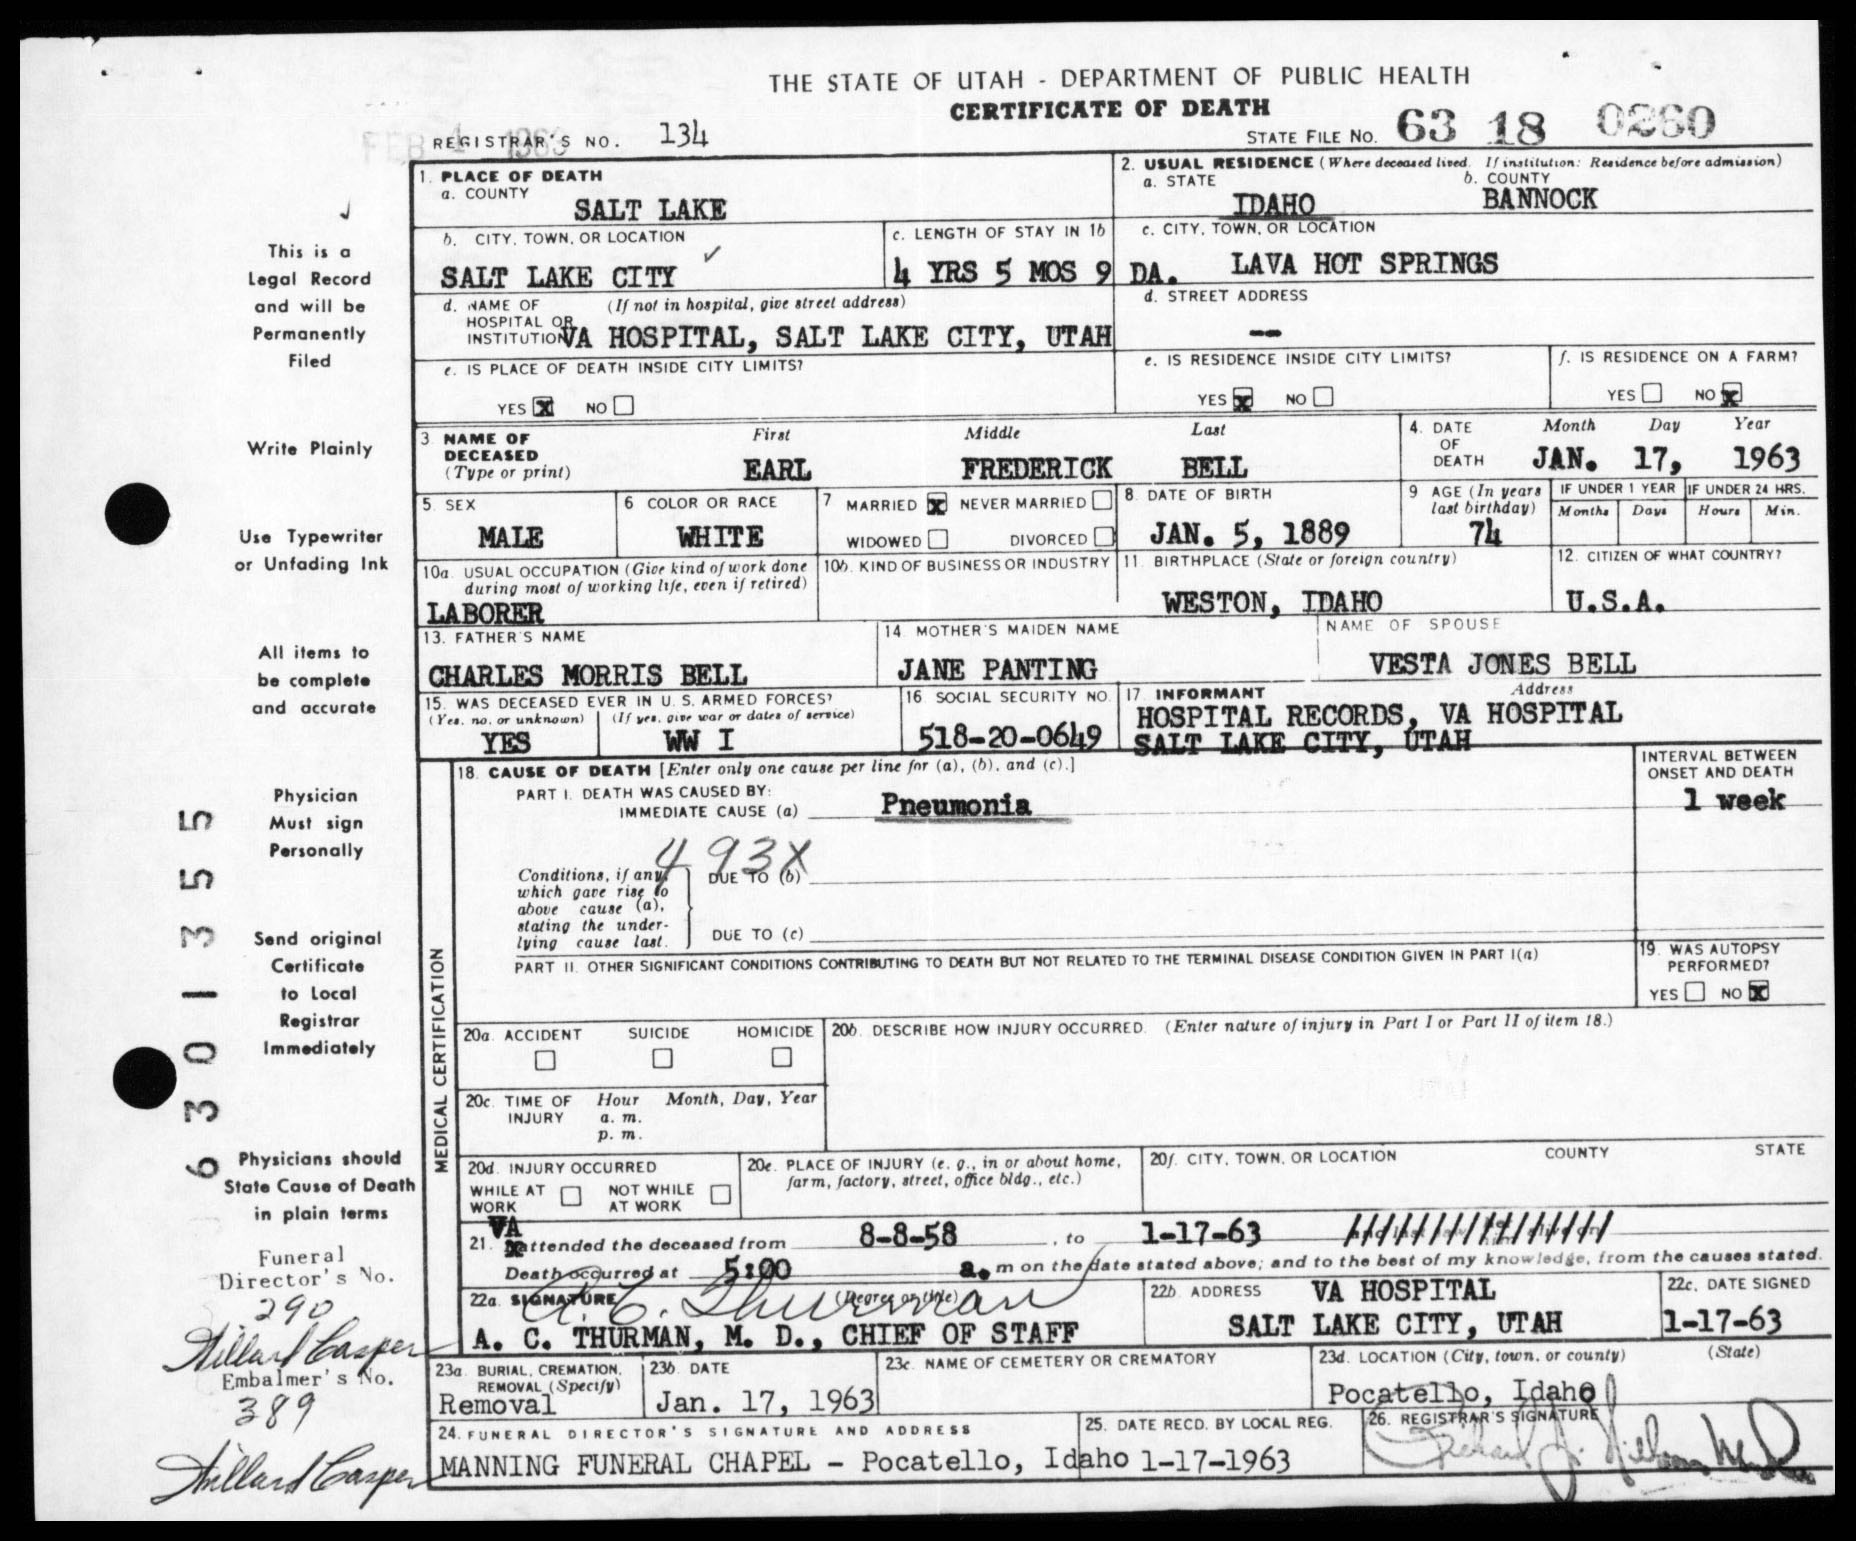 THE STATE OF UTAH - DEPARTMENT OF PUBLIC HEALTH
CERTIFICATE OF DEATH
FEB 1963
REGISTRAR'S NO. 134
STATE FILE NO. 63 18 0260
1. PLACE OF DEATH
a. COUNTY
SALT LAKE
2. USUAL RESIDENCE (Where deceased lived. If institution: Residence before admission)
a. STATE b. COUNTY
IDAHO BANNOCK
b. CITY, TOWN, OR LOCATION
SALT LAKE CITY
c. LENGTH OF STAY IN 1b
4 YRS 5 MOS 9 DA.
c. CITY, TOWN, OR LOCATION
LAVA HOT SPRINGS
d. NAME OF (If not in hospital, give street address)
HOSPITAL OR
INSTITUTION VA HOSPITAL, SALT LAKE CITY, UTAH
d. STREET ADDRESS
--
e. IS PLACE OF DEATH INSIDE CITY LIMITS?
YES X NO
e. IS RESIDENCE INSIDE CITY LIMITS?
YES X NO
f. IS RESIDENCE ON A FARM?
YES NO X
3. NAME OF DECEASED
(Type or print)
First Middle Last
EARL FREDERICK BELL
4. DATE OF DEATH
Month Day Year
JAN. 17, 1963
5. SEX
MALE
6 COLOR OR RACE
WHITE
7 MARRIED X NEVER MARRIED
WIDOWED DIVORCED
8. DATE OF BIRTH
JAN. 5, 1889
9 AGE (In years
last birthday)
74
IF UNDER 1 YEAR
Months Days
IF UNDER 24 HRS.
Hours Min.
10a. USUAL OCCUPATION (Give kind of work done
during most of working life, even if retired)
LABORER
10b. KIND OF BUSINESS OR INDUSTRY
11. BIRTHPLACE (State or foreign country)
WESTON, IDAHO
12. CITIZEN OF WHAT COUNTRY?
U.S.A.
13. FATHER'S NAME
CHARLES MORRIS BELL
14. MOTHER'S MAIDEN NAME
JANE PANTING
NAME OF SPOUSE
VESTA JONES BELL
15. WAS DECEASED EVER IN U. S. ARMED FORCES?
(Yes, no, or unknown) (If yes, give war or dates of service)
YES WW I
16. SOCIAL SECURITY NO.
518-20-0649
17. INFORMANT Address
HOSPITAL RECORDS, VA HOSPITAL
SALT LAKE CITY, UTAH
MEDICAL CERTIFICATION
18. CAUSE OF DEATH [Enter only one cause per line for (a), (b), and (c).]
PART I. DEATH WAS CAUSED BY:
IMMEDIATE CAUSE (a) Pneumonia
INTERVAL BETWEEN
ONSET AND DEATH
1 week
493X
Conditions, if any,
which gave rise to
above cause (a),
stating the under-
lying cause last.
DUE TO (b)
DUE TO (c)
PART II. OTHER SIGNIFICANT CONDITIONS CONTRIBUTING TO DEATH BUT NOT RELATED TO THE TERMINAL DISEASE CONDITION GIVEN IN PART I(a)
19. WAS AUTOPSY
PERFORMED?
YES NO X
20a. ACCIDENT SUICIDE HOMICIDE
20b. DESCRIBE HOW INJURY OCCURRED. (Enter nature of injury in Part I or Part II of item 18.)
20c. TIME OF INJURY
Hour Month, Day, Year
a. m.
p. m.
20d. INJURY OCCURRED
WHILE AT WORK NOT WHILE AT WORK
20e. PLACE OF INJURY (e. g., in or about home,
farm, factory, street, office bldg., etc.)
20f. CITY, TOWN, OR LOCATION COUNTY STATE
VA
21. attended the deceased from 8-8-58, to 1-17-63
Death occurred at 5:00 a. m on the date stated above; and to the best of my knowledge, from the causes stated.
22a. SIGNATURE (Degree or title)
A. C. Thurman
A. C. THURMAN, M. D., CHIEF OF STAFF
22b. ADDRESS VA HOSPITAL
SALT LAKE CITY, UTAH
22c. DATE SIGNED
1-17-63
23a. BURIAL, CREMATION,
REMOVAL (Specify)
Removal
23b. DATE
Jan. 17, 1963
23c. NAME OF CEMETERY OR CREMATORY
23d. LOCATION (City, town, or county) (State)
Pocatello, Idaho
24. FUNERAL DIRECTOR'S SIGNATURE AND ADDRESS
MANNING FUNERAL CHAPEL - Pocatello, Idaho
25. DATE RECD. BY LOCAL REG.
1-17-1963
26. REGISTRAR'S SIGNATURE
This is a
Legal Record
and will be
Permanently
Filed
Write Plainly
Use Typewriter
or Unfading Ink
All items to
be complete
and accurate
Physician
Must sign
Personally
Send original
Certificate
to Local
Registrar
Immediately
Physicians should
State Cause of Death
in plain terms
Funeral
Director's No.
290
Willard Casper
Embalmer's No.
389
Willard Casper
6301355